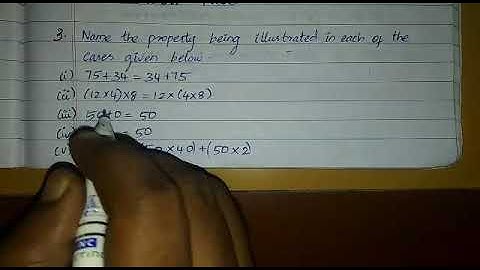 3. Name the property being illustrated in each of the
cases given below.
(i) 75+34 = 34+75
(ii) (12×4)×8 = 12×(4×8)
(iii) 50+0 = 50
(iv) = 50
(v) ×40)+(50×2)